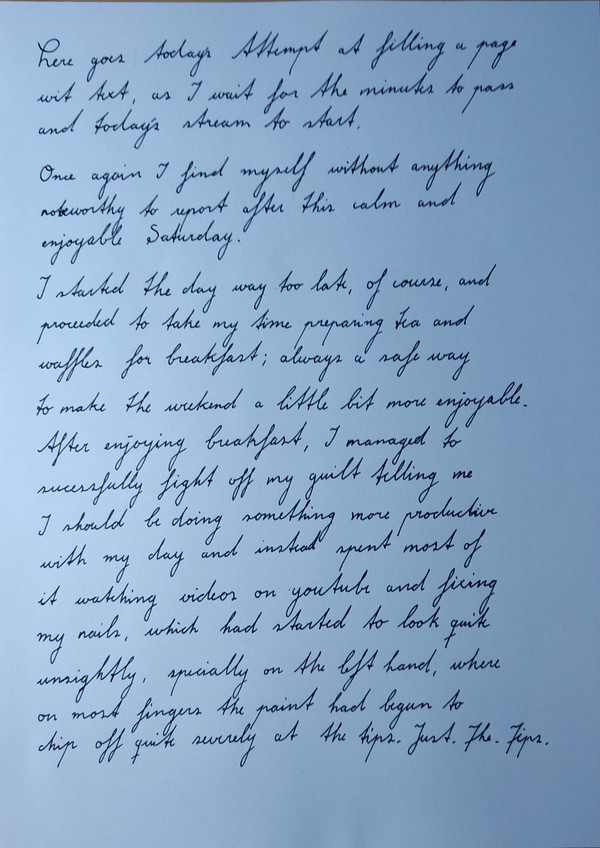 here goes today's attempt at filling a page
wit text, as I wait for the minutes to pass
and today's stream to start.
Once again I find myself without anything
noteworthy to report after this calm and
enjoyable Saturday.
I started the day way too late, of course, and
proceeded to take my time preparing tea and
waffles for breakfast; always a safe way
to make the weekend a little bit more enjoyable.
After enjoying breakfast, I managed to
sucessfully fight off my guilt telling me
I should be doing something more productive
with my day and instead spent most of
it watching videos on youtube and fixing
my nails, which had started to look quite
unsightly, specially on the left hand, where
on most fingers the paint had begun to
chip off quite severely at the tips. Just. The. Tips.